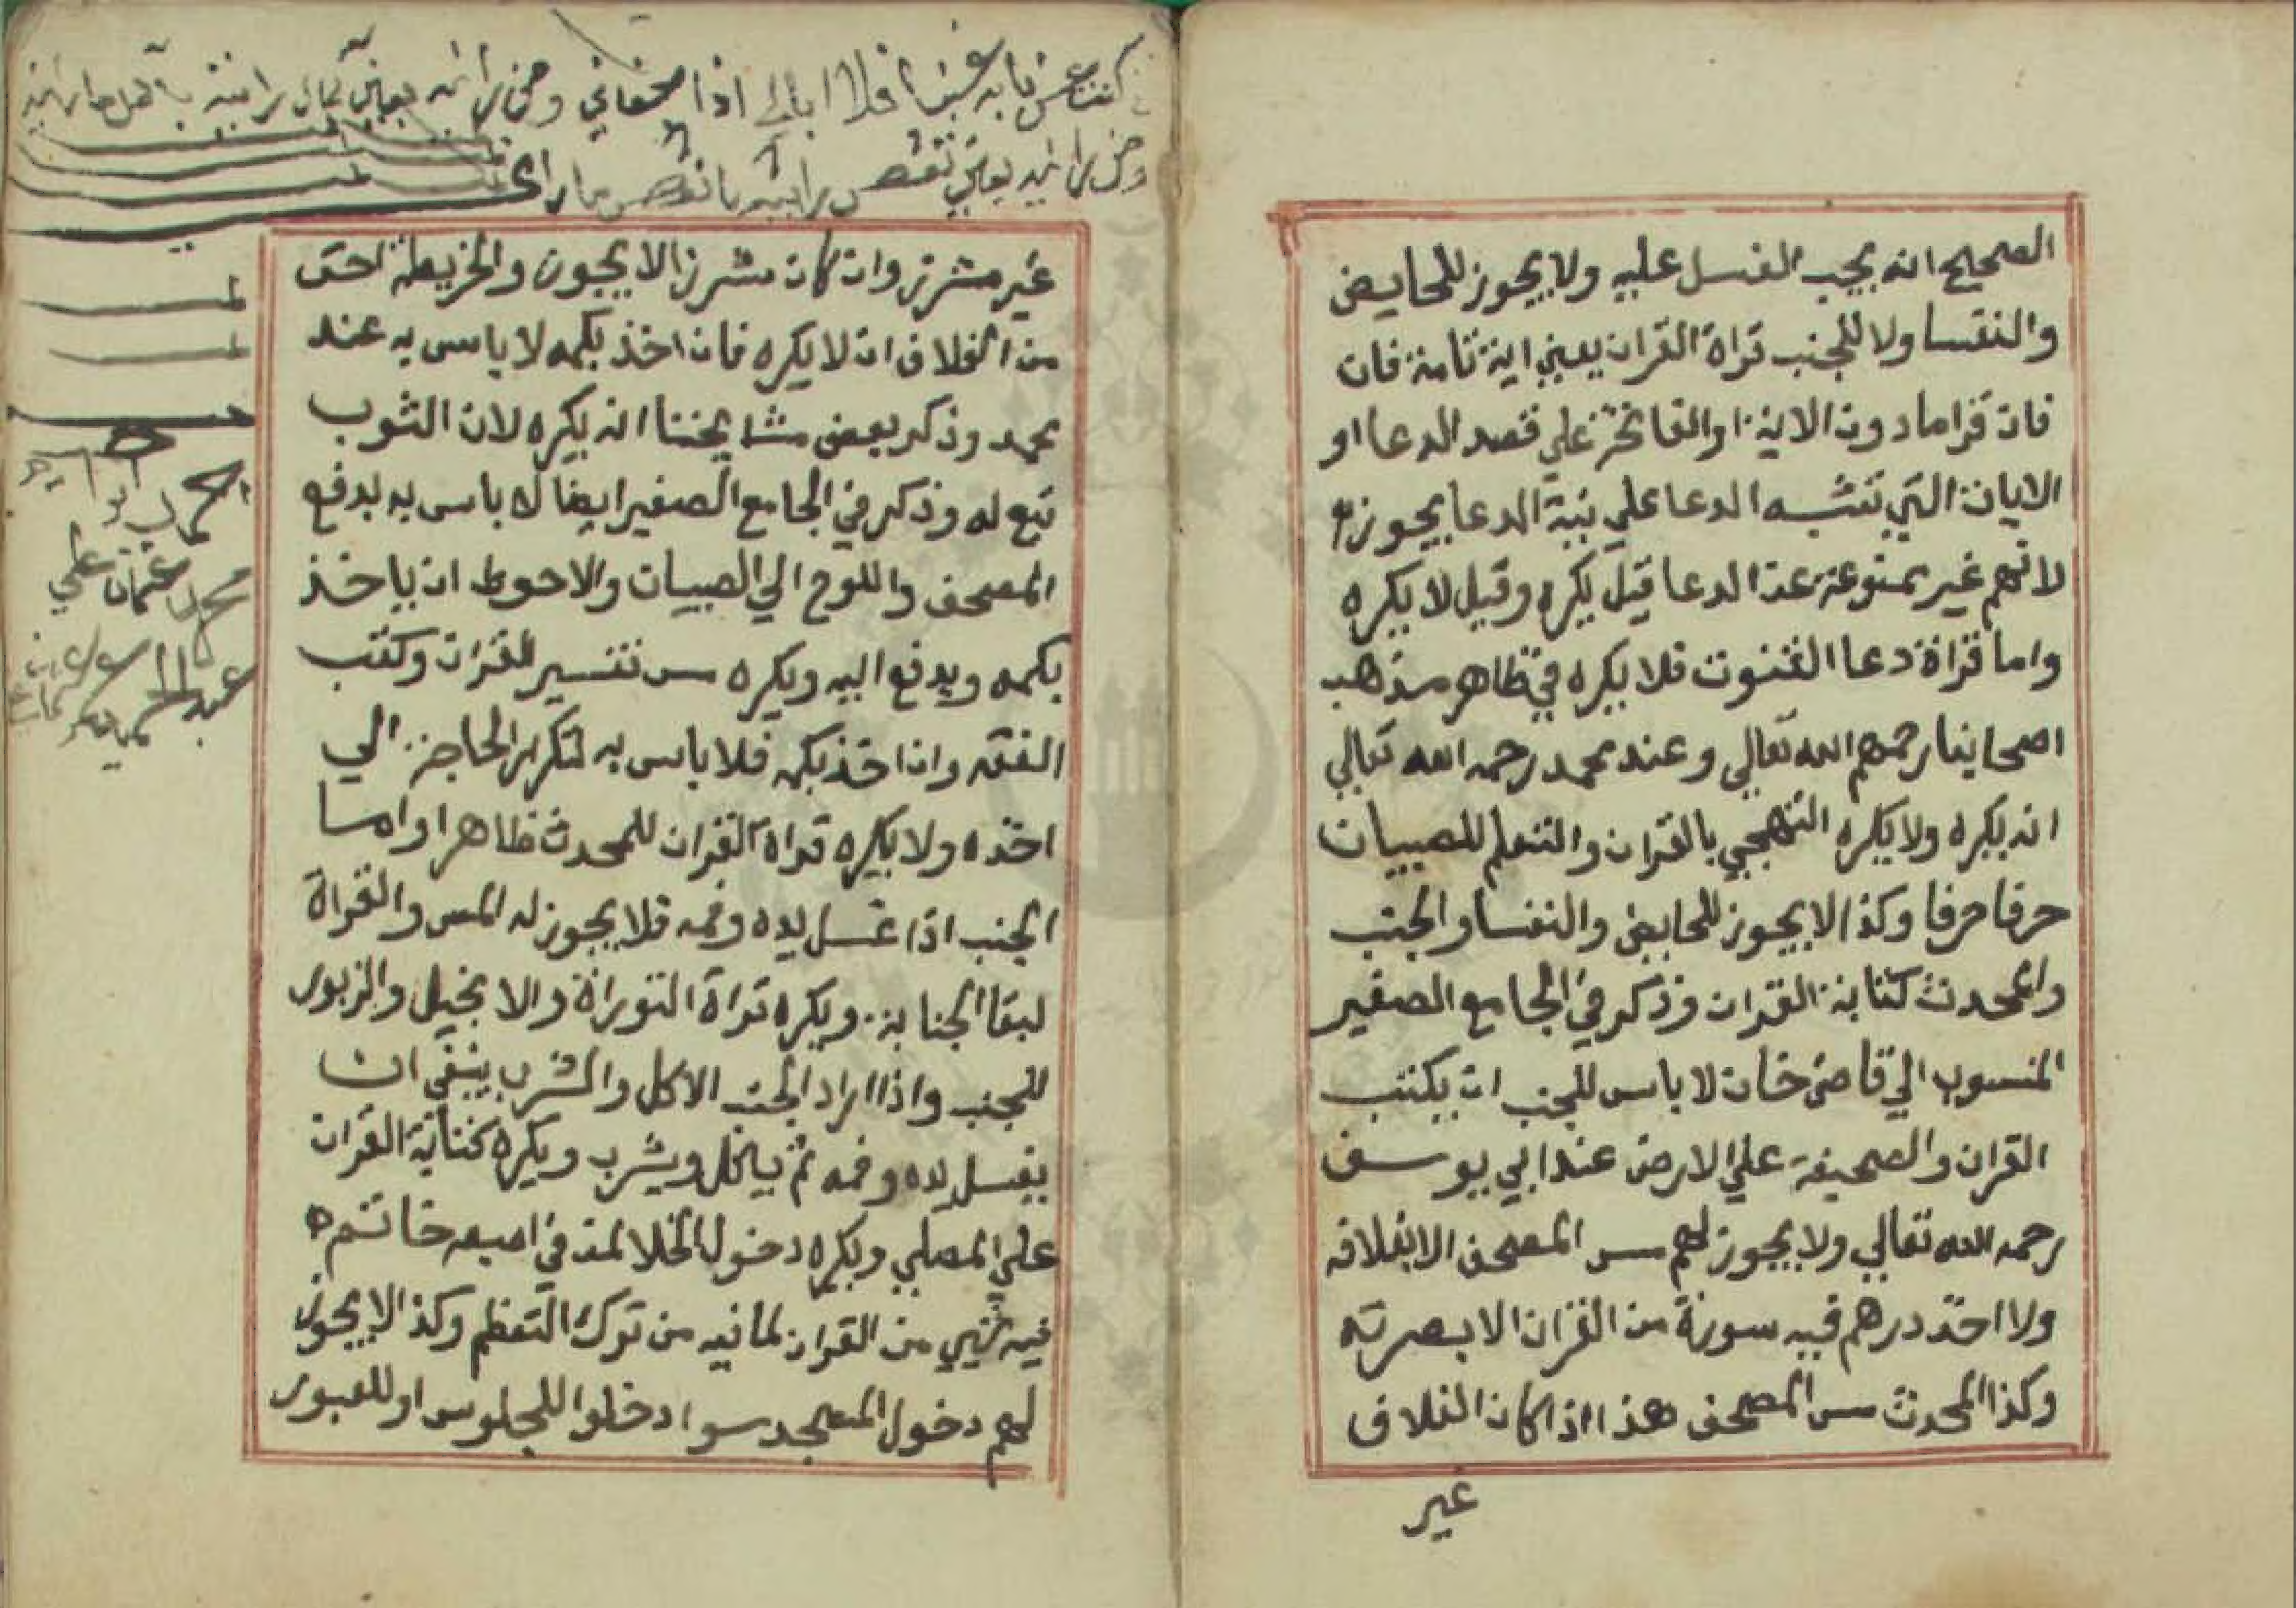 الصحيح انه يجب الغسل عليه ولا يجوز للحايض
والنفسا ولا للجنب قراة القران يعني اية تامة فان
فان قرا مادون الاية او الفاتحة علي قصد الدعا او
الايات التي تشبه الدعا علي نية الدعا يجوز
لانهم غير ممنوعة عن الدعا قيل يكره وقيل لا يكره
واما قراة دعا القنوت فلا يكره في ظاهر مذهب
اصحابنا رحمهم الله تعالي وعند محمد رحمه الله تعالي
انه يكره ولا يكره التهجي بالقران والتعلم للصبيان
حرفا حرفا وكذا لا يجوز للحايض والنفسا والجنب
والمحدث كتابة القران وذكر في الجامع الصغير
المنسوب الي قاضي خان لا باس للجنب ان يكتب
القران والصحيفة علي الارض عند ابي يوسف
رحمه الله تعالي ولا يجوز لهم مس المصحف الا بغلافه
ولا اخذ درهم فيه سورة من القران الا بصرته
وكذا المحدث مس المصحف هذا اذا كان الغلاف
غير
غير مشرز وان كان مشرزا لا يجوز والخريطة احق
من الغلاف ان لا يكره فان اخذ بكمه لا باس به عند
محمد وذكر بعض مشايخنا انه يكره لان الثوب
تبع له وذكر في الجامع الصغير ايضا لا باس به بدفع
المصحف واللوح الي الصبيان والاحوط ان ياخذ
بكمه ويدفع اليه ويكره مس تفسير القران وكتب
الفقه وان اخذ بكمه فلا باس به لتكرر الحاجة الي
اخذه ولا يكره قراة القران للمحدث ظاهرا واما
الجنب اذا غسل يده وفمه فلا يجوز له المس والقراة
لبقا الجنابة ويكره قراة التوراة والانجيل والزبور
للجنب واذا اراد الجنب الاكل والشرب ينبغي ان
يغسل يده وفمه ثم ياكل ويشرب ويكره كتابة القران
علي المصلي ويكره دخول الخلا لمن في اصبعه خاتم
فيه شيي من القران لما فيه من ترك التعظم وكذا لا يجوز
لهم دخول المسجد سوا دخلوا للجلوس او للعبور
فلا ابالي اذا
احمد
محمد عثمان علي